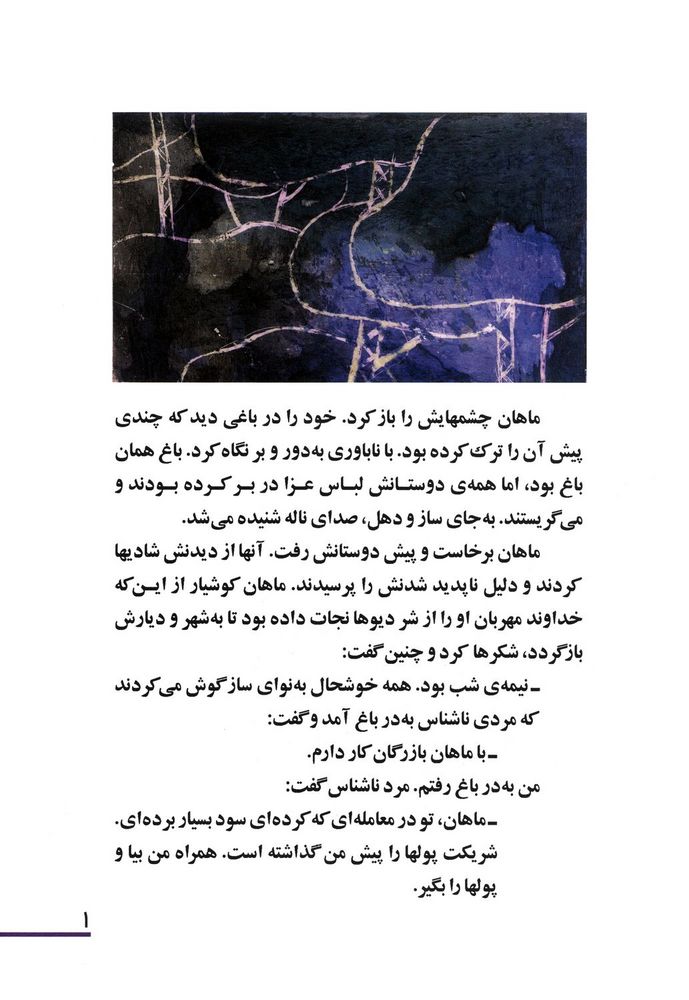 ماهان چشمهایش را باز کرد. خود را در باغی دید که چندی
پیش آن را ترک کرده بود. با ناباوری به‌دور و بر نگاه کرد. باغ همان
باغ بود، اما همه‌ی دوستانش لباس عزا در بر کرده بودند و
می‌گریستند. به‌جای ساز و دهل، صدای ناله شنیده می‌شد.
ماهان برخاست و پیش دوستانش رفت. آنها از دیدنش شادیها
کردند و دلیل ناپدید شدنش را پرسیدند. ماهان کوشیار از این‌که
خداوند مهربان او را از شر دیوها نجات داده بود تا به‌شهر و دیارش
بازگردد، شکرها کرد و چنین گفت:
ـ نیمه‌ی شب بود. همه خوشحال به‌نوای ساز گوش می‌کردند
که مردی ناشناس به‌در باغ آمد و گفت:
ـ با ماهان بازرگان کار دارم.
من به‌در باغ رفتم. مرد ناشناس گفت:
ـ ماهان، تو در معامله‌ای که کرده‌ای سود بسیار برده‌ای.
شریکت پولها را پیش من گذاشته است. همراه من بیا و
پولها را بگیر.
۱